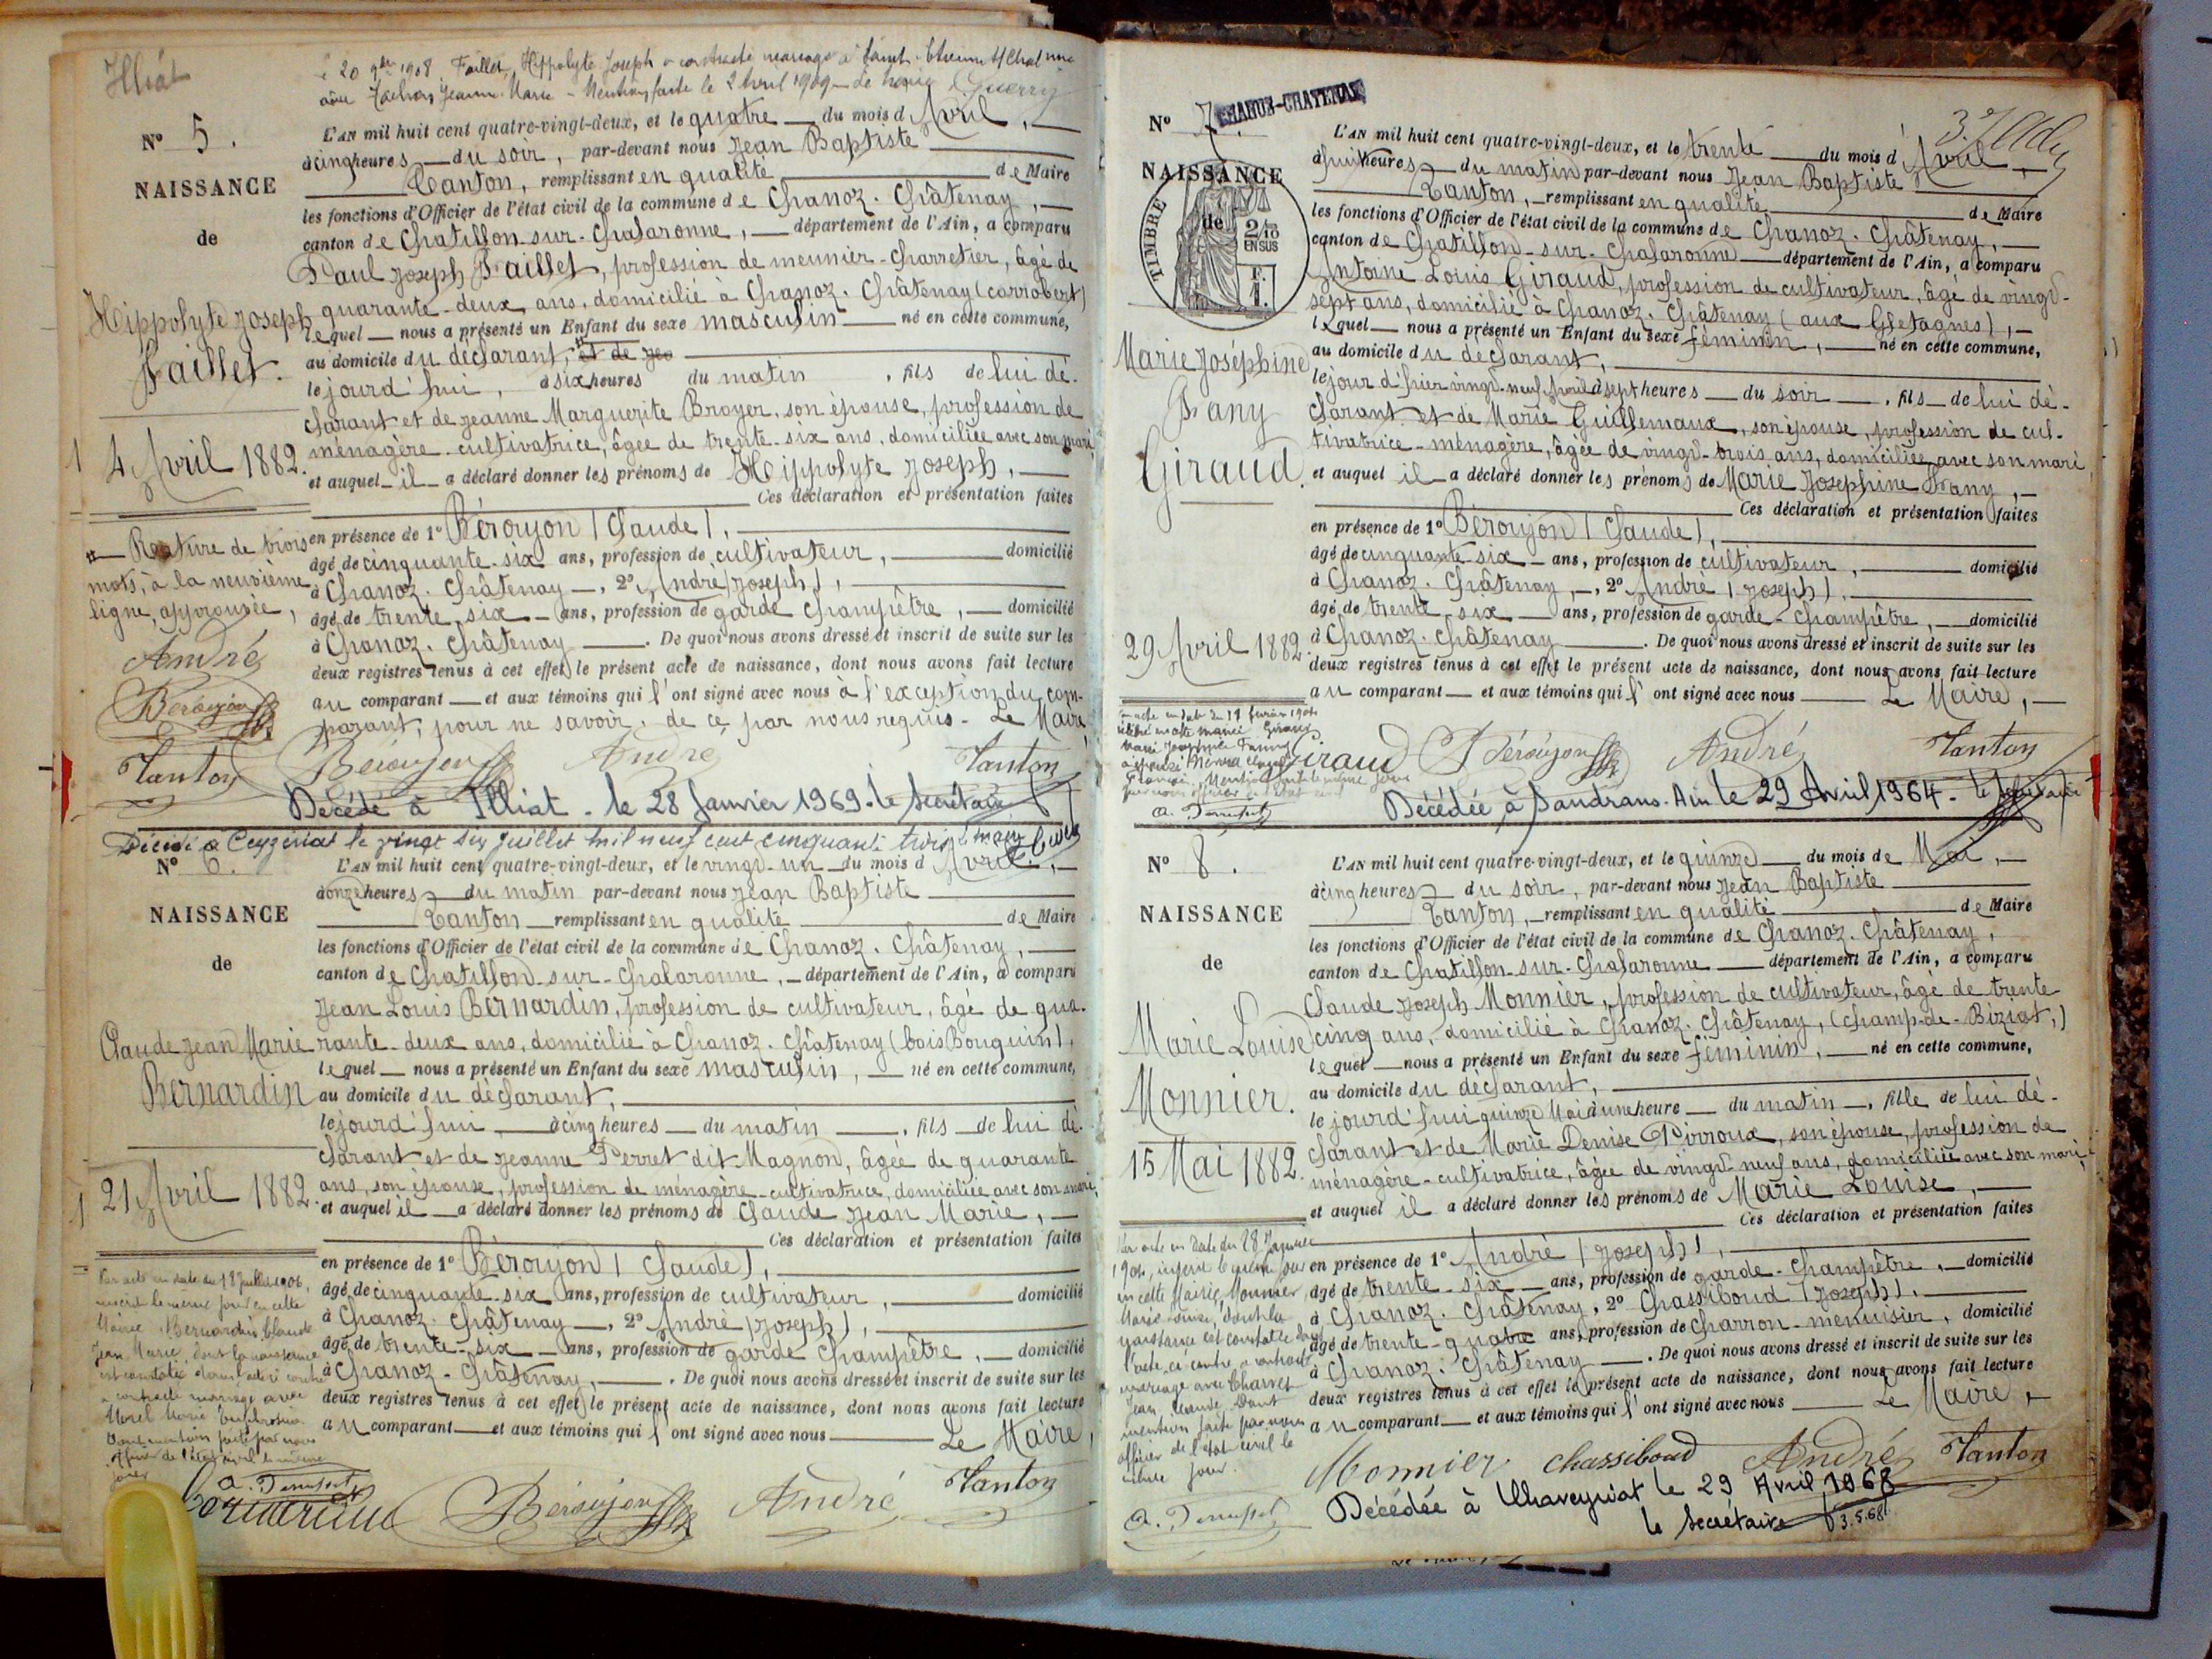 Illiat
Le 20 9bre 1908, Faillet, Hippolyte Joseph a contracté mariage à Saint-Etienne s/Chal
avec Jeanne Marie - Mention faite le 2 Avril 1909 - Le Guerry
N° 5.
NAISSANCE
de
Hippolyte Joseph
Faillet.
4 Avril 1882.
Rature de trois
mots, à la neuvième
ligne, approuvée,
André
Béroujon
Tanton
L'AN mil huit cent quatre-vingt-deux, et le quatre du mois d'Avril,
à cinq heures du soir, par-devant nous Jean Baptiste
Tanton, remplissant en qualité de Maire
les fonctions d'Officier de l'état civil de la commune de Chanoz-Châtenay,
canton de Chatillon-sur-Chalaronne, département de l'Ain, a comparu
Paul Joseph Faillet, profession de meunier-charretier, âgé de
quarante-deux ans, domicilié à Chanoz-Châtenay (Corrobert)
lequel nous a présenté un Enfant du sexe masculin né en cette commune,
au domicile du déclarant, et de
lejourd'hui, à six heures du matin, fils de lui dé-
clarant et de Jeanne Marguerite Broyer, son épouse, profession de
ménagère-cultivatrice, âgée de trente-six ans, domiciliée avec son mari
et auquel il a déclaré donner les prénoms de Hippolyte Joseph,
Ces déclaration et présentation faites
en présence de 1° Béroujon (Claude),
âgé de cinquante-six ans, profession de cultivateur, domicilié
à Chanoz-Châtenay, 2° André (Joseph),
âgé de trente-six ans, profession de garde champêtre, domicilié
à Chanoz-Châtenay. De quoi nous avons dressé et inscrit de suite sur les
deux registres tenus à cet effet le présent acte de naissance, dont nous avons fait lecture
au comparant et aux témoins qui l'ont signé avec nous à l'exception du com-
parant, pour ne savoir, de ce par nous requis. Le Maire
Béroujon André Tanton
Décédé à Illiat - le 28 Janvier 1969 - le Secrétaire
Décédé à Ceyzeriat le vingt six juillet mil neuf cent cinquante trois
N° 6.
NAISSANCE
de
Claude Jean Marie
Bernardin
21 Avril 1882.
Par acte en date du 18 Juillet 1906,
inscrit le même jour en cette
Mairie Bernardin Claude
Jean Marie, dont la naissance
est constatée dans l'acte ci contre
a contracté mariage avec
Morel Marie
Dont mention faite par nous
officier de l'état civil le même
jour
L'AN mil huit cent quatre-vingt-deux, et le vingt-un du mois d'Avril,
à onze heures du matin par-devant nous Jean Baptiste
Tanton remplissant en qualité de Maire
les fonctions d'Officier de l'état civil de la commune de Chanoz-Châtenay,
canton de Chatillon-sur-Chalaronne, département de l'Ain, a comparu
Jean Louis Bernardin, profession de cultivateur, âgé de qua-
rante-deux ans, domicilié à Chanoz-Châtenay (bois Bouquin),
lequel nous a présenté un Enfant du sexe masculin, né en cette commune,
au domicile du déclarant,
lejourd'hui à cinq heures du matin, fils de lui dé-
clarant et de Jeanne Perret dit Magnon, âgée de quarante
ans, son épouse, profession de ménagère-cultivatrice, domiciliée avec son mari,
et auquel il a déclaré donner les prénoms de Claude Jean Marie,
Ces déclaration et présentation faites
en présence de 1° Béroujon (Claude),
âgé de cinquante-six ans, profession de cultivateur, domicilié
à Chanoz-Châtenay, 2° André (Joseph),
âgé de trente-six ans, profession de garde champêtre, domicilié
à Chanoz-Châtenay, De quoi nous avons dressé et inscrit de suite sur les
deux registres tenus à cet effet le présent acte de naissance, dont nous avons fait lecture
au comparant et aux témoins qui l'ont signé avec nous Le Maire,
Bernardin Béroujon André Tanton
N° 7. CHANOZ-CHATENAY
NAISSANCE
de
TIMBRE
2/10
EN SUS
F.
1.
Marie Joséphine
Fany
Giraud.
29 Avril 1882.
L'AN mil huit cent quatre-vingt-deux, et le trente du mois d'Avril,
à huit heures du matin par-devant nous Jean Baptiste
Tanton, remplissant en qualité de Maire
les fonctions d'Officier de l'état civil de la commune de Chanoz-Châtenay,
canton de Chatillon-sur-Chalaronne département de l'Ain, a comparu
Antoine Louis Giraud, profession de cultivateur, âgé de vingt-
sept ans, domicilié à Chanoz-Châtenay (aux
lequel nous a présenté un Enfant du sexe féminin, né en cette commune,
au domicile du déclarant,
lejour d'hier vingt-neuf Avril à sept heures du soir, fils de lui dé-
clarant et de Marie Guillemaux, son épouse, profession de cul-
tivatrice-ménagère, âgée de vingt-trois ans, domiciliée avec son mari,
et auquel il a déclaré donner les prénoms de Marie Joséphine Fany,
Ces déclaration et présentation faites
en présence de 1° Béroujon (Claude),
âgé de cinquante-six ans, profession de cultivateur, domicilié
à Chanoz-Châtenay, 2° André (Joseph),
âgé de trente-six ans, profession de garde-champêtre, domicilié
à Chanoz-Châtenay. De quoi nous avons dressé et inscrit de suite sur les
deux registres tenus à cet effet le présent acte de naissance, dont nous avons fait lecture
au comparant et aux témoins qui l'ont signé avec nous Le Maire,
Giraud Béroujon André Tanton
Décédée à Sandrans. Ain le 29 Avril 1964 - le Secrétaire
N° 8.
NAISSANCE
de
Marie Louise
Monnier.
15 Mai 1882.
Par acte en date du 28 Janvier
1904, inscrit le même jour
en cette Mairie, Monnier
Marie Louise, dont la
naissance est constatée dans
l'acte ci contre, a contracté
mariage avec Charvet
Jean Claude. Dont
mention faite par nous
officier de l'état civil le
même jour.
L'AN mil huit cent quatre-vingt-deux, et le quinze du mois de Mai,
à cinq heures du soir, par-devant nous Jean Baptiste
Tanton, remplissant en qualité de Maire
les fonctions d'Officier de l'état civil de la commune de Chanoz-Châtenay,
canton de Chatillon-sur-Chalaronne département de l'Ain, a comparu
Claude Joseph Monnier, profession de cultivateur, âgé de trente
cinq ans, domicilié à Chanoz-Châtenay, (Champ-de-Biziat,)
lequel nous a présenté un Enfant du sexe féminin, né en cette commune,
au domicile du déclarant,
le jourd'hui quinze Mai à une heure du matin, fille de lui dé-
clarant et de Marie Denise Pirroux, son épouse, profession de
ménagère-cultivatrice, âgée de vingt-neuf ans, domiciliée avec son mari,
et auquel il a déclaré donner les prénoms de Marie Louise,
Ces déclaration et présentation faites
en présence de 1° André (Joseph),
âgé de trente-six ans, profession de garde-champêtre, domicilié
à Chanoz-Châtenay, 2° Chassiboud (Joseph),
âgé de trente-quatre ans, profession de charron-menuisier, domicilié
à Chanoz-Châtenay. De quoi nous avons dressé et inscrit de suite sur les
deux registres tenus à cet effet le présent acte de naissance, dont nous avons fait lecture
au comparant et aux témoins qui l'ont signé avec nous Le Maire,
Monnier Chassiboud André Tanton
Décédée à Chaveyriat le 29 Avril 1968
le Secrétaire 3.5.68